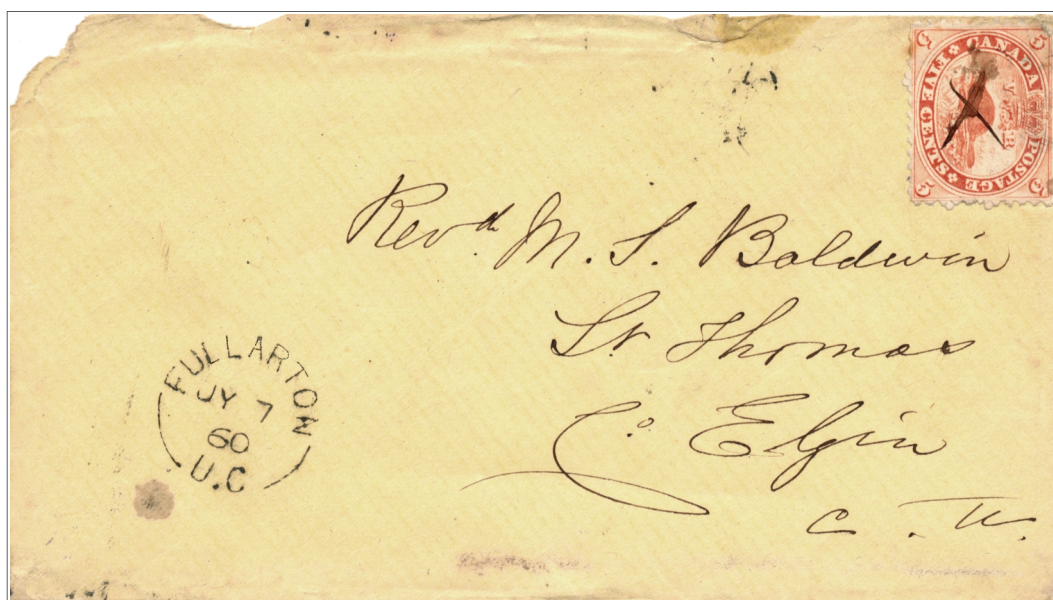 CANADA POSTAGE
FIVE CENTS
5 5 5 5
Revd. M. S. Baldwin
St. Thomas
Co. Elgin
C. W.
FULLARTON
JY 7
60
U.C